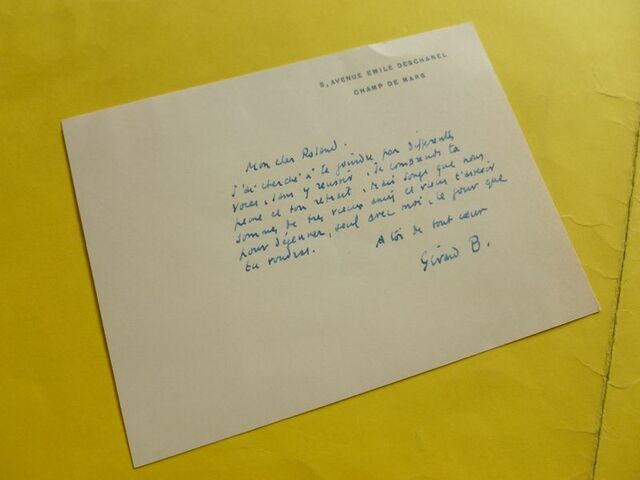 5, AVENUE EMILE DESCHANEL
CHAMP DE MARS
Mon cher Roland.
J'ai cherché à te joindre par différentes
voies, sans y réussir. Je comprends ta
peine et ton retrait, mais songe que nous
sommes de très vieux amis et viens t'asseoir
pour déjeuner, seul avec moi, le jour que
tu voudras.
A toi de tout cœur
Gérard B.